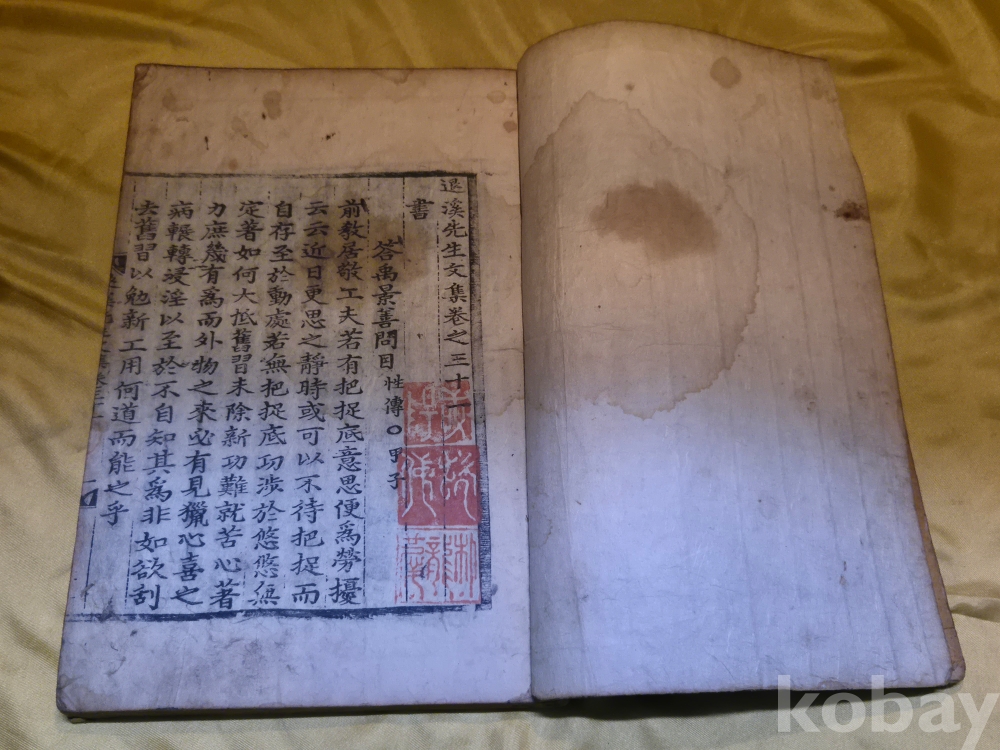 退溪先生文集卷之三十二
書
答禹景善問目 性傳○甲子
前敎居敬工夫若有把捉底意思便爲勞擾
云云近日更思之靜時或可以不待把捉而
自存至於動處若無把捉底功涉於悠悠無
定著如何大抵舊習未除新功難就苦心著
力庶幾有爲而外物之來必有見獵心喜之
病輾轉浸淫以至於不自知其爲非如欲刮
去舊習以勉新工用何道而能之乎
kobay